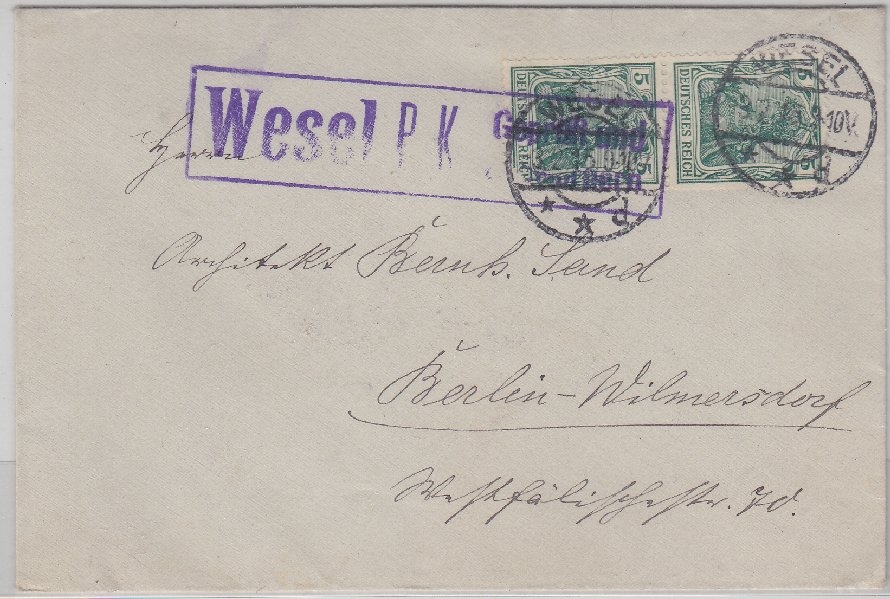 Wesel P K Geprüft und
DEUTSCHES REICH 5 5
DEUTSCHES REICH 5 5
WESEL
WESEL
Herrn
Architekt Bernh. Sand
Berlin-Wilmersdorf
Westfälischestr. 70.